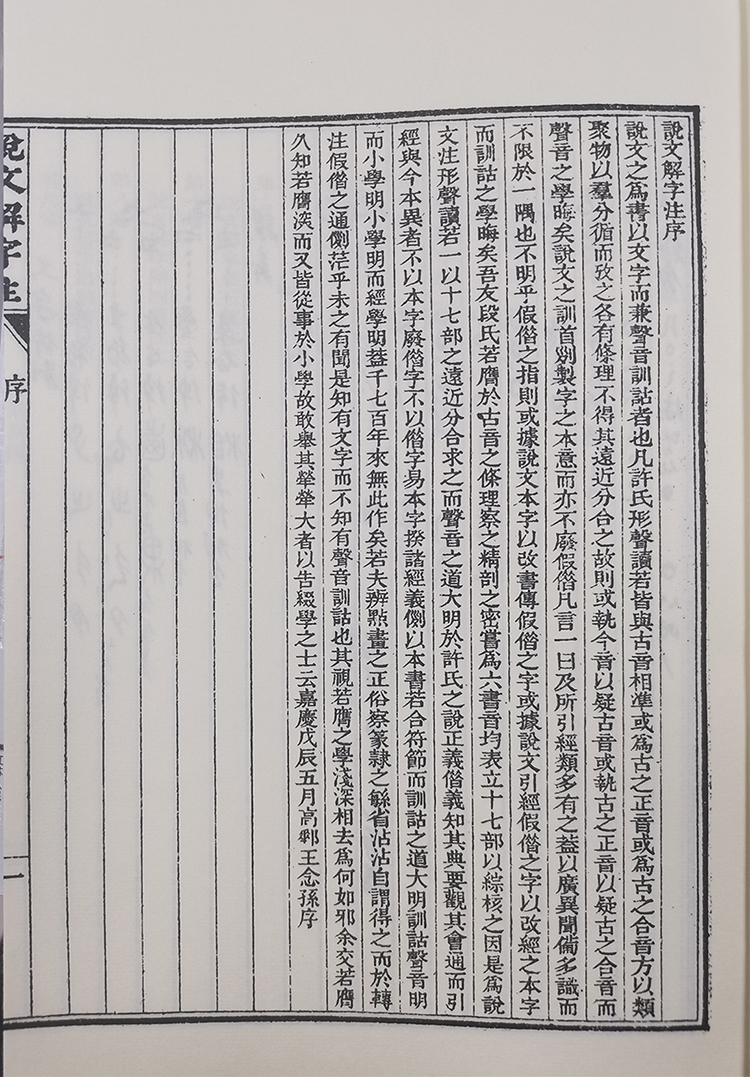 說文解字注序
說文之爲書以文字而兼聲音訓詁者也凡許氏形聲讀若皆與古音相準或爲古之正音或爲古之合音方以類
聚物以羣分循而攷之各有條理不得其遠近分合之故則或執今音以疑古音或執古之正音以疑古之合音而
聲音之學晦矣說文之訓首列製字之本意而亦不廢假借凡言一曰及所引經類多有之葢以廣異聞備多識而
不限於一隅也不明乎假借之指則或據說文本字以改書傳假借之字或據說文引經假借之字以改經之本字
而訓詁之學晦矣吾友段氏若膺於古音之條理察之精剖之密嘗爲六書音均表立十七部以綜核之因是爲說
文注形聲讀若一以十七部之遠近分合求之而聲音之道大明於許氏之說正義借義知其典要觀其會通而引
經與今本異者不以本字廢借字不以借字易本字揆諸經義例以本書若合符節而訓詁之道大明訓詁聲音明
而小學明小學明而經學明葢千七百年來無此作矣若夫辨點畫之正俗察篆隸之緐省沾沾自謂得之而於轉
注假借之通例茫乎未之有聞是知有文字而不知有聲音訓詁也其視若膺之學淺深相去爲何如邪余交若膺
久知若膺深而又皆從事於小學故敢舉其犖犖大者以告綴學之士云嘉慶戊辰五月高郵王念孫序
說文解字注
序
一